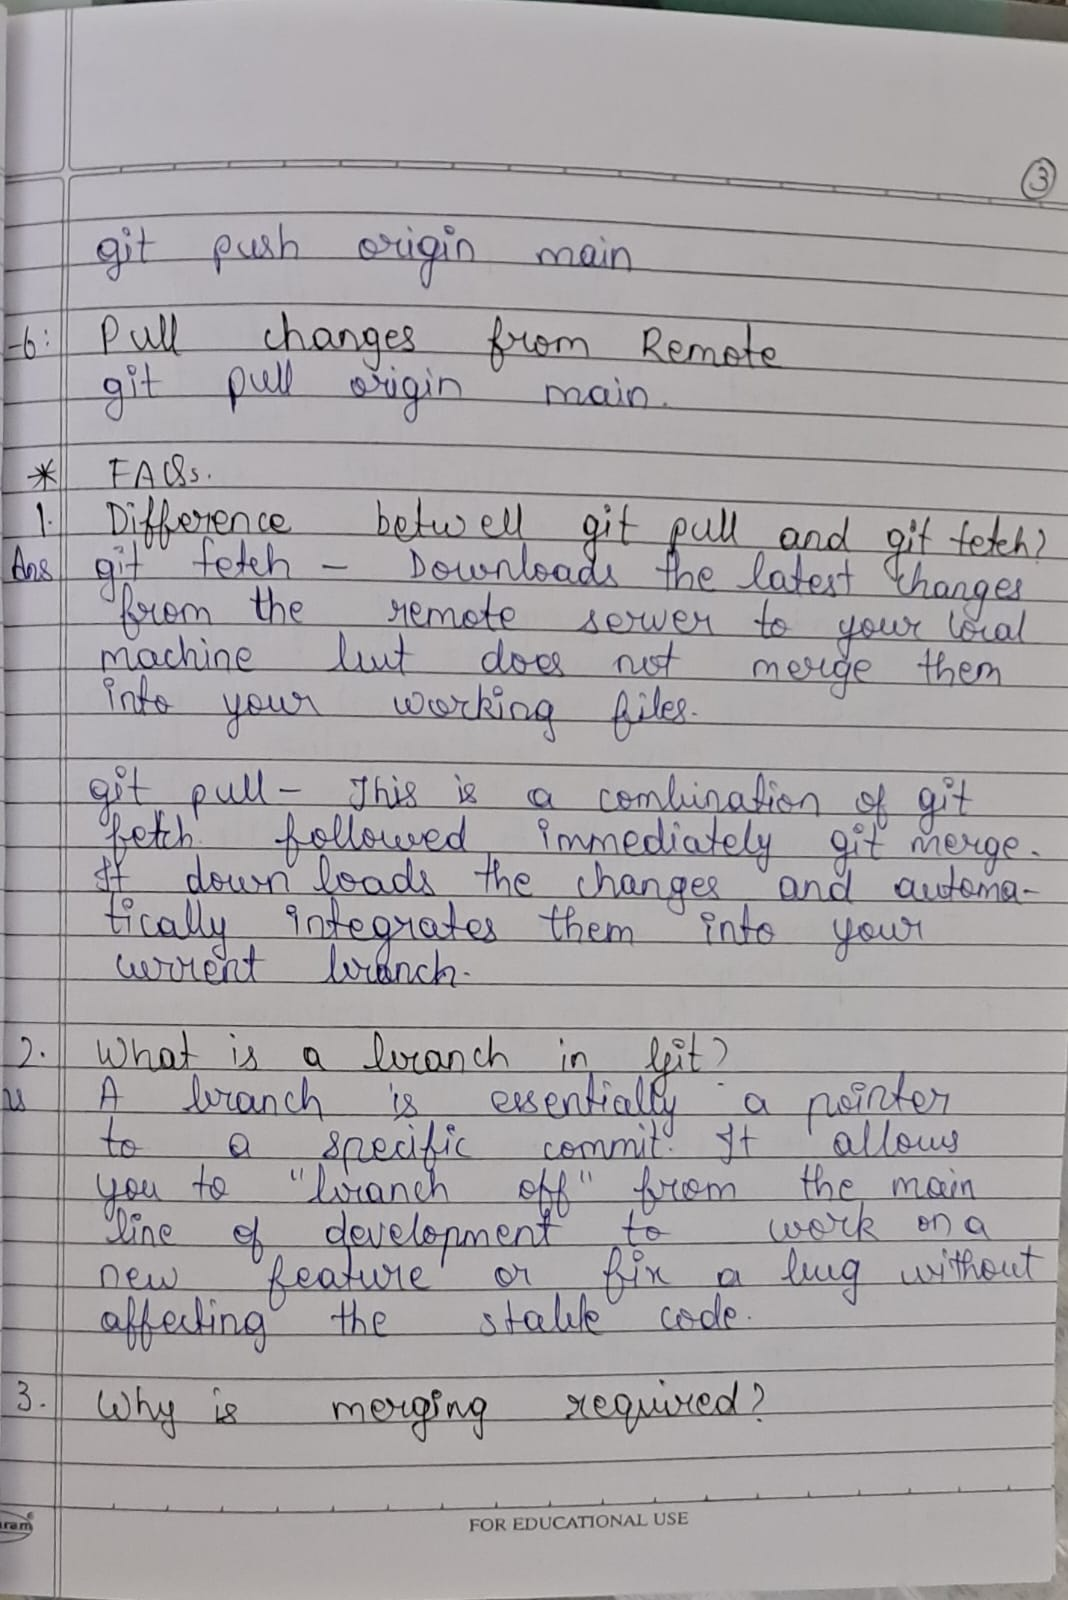 3
git push origin main
-6: Pull changes from Remote
git pull origin main.
* FAQs.
1. Difference betwell git pull and git fetch?
Ans git fetch - Downloads the latest changes
from the remote server to your local
machine but does not merge them
into your working files.
git pull - This is a combination of git
fetch followed immediately git merge.
It down loads the changes and automa-
tically integrates them into your
current branch.
2. What is a branch in Git?
s A branch is essentially a pointer
to a specific commit. It allows
you to "branch off" from the main
line of development to work on a
new feature or fix a bug without
affecting the stable code.
3. Why is merging required?
ram
FOR EDUCATIONAL USE